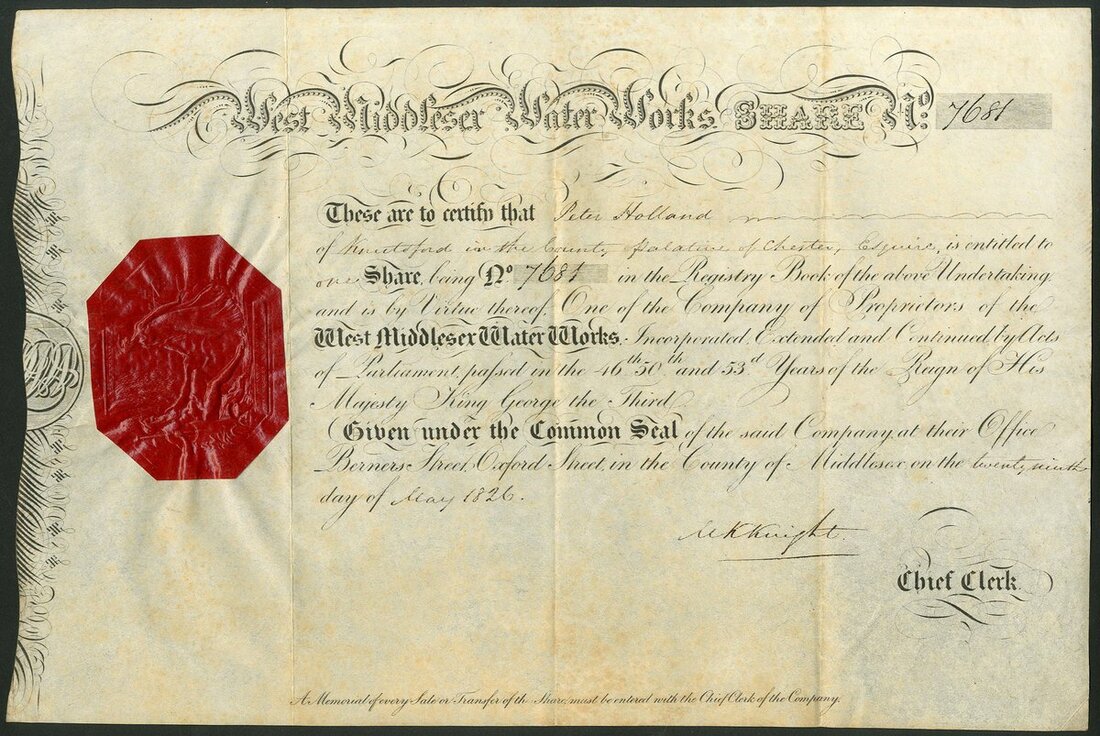 West Middlesex Water Works SHARE No. 7681
These are to certify that Peter Holland
of Knutsford in the County palatine of Chester, Esquire, is entitled to
one Share, being No. 7681 in the Registry Book of the above Undertaking
and is by Virtue thereof, One of the Company of Proprietors of the
West Middlesex Water Works, Incorporated, Extended and Continued by Acts
of Parliament, passed in the 46th 50th and 53d Years of the Reign of His
Majesty King George the Third.
Given under the Common Seal of the said Company, at their Office
Berners Street, Oxford Street, in the County of Middlesex, on the twenty ninth
day of May 1826.
M K Knight
Chief Clerk.
A Memorial of every Sale or Transfer of th Share, must be entered with the Chief Clerk of the Company.